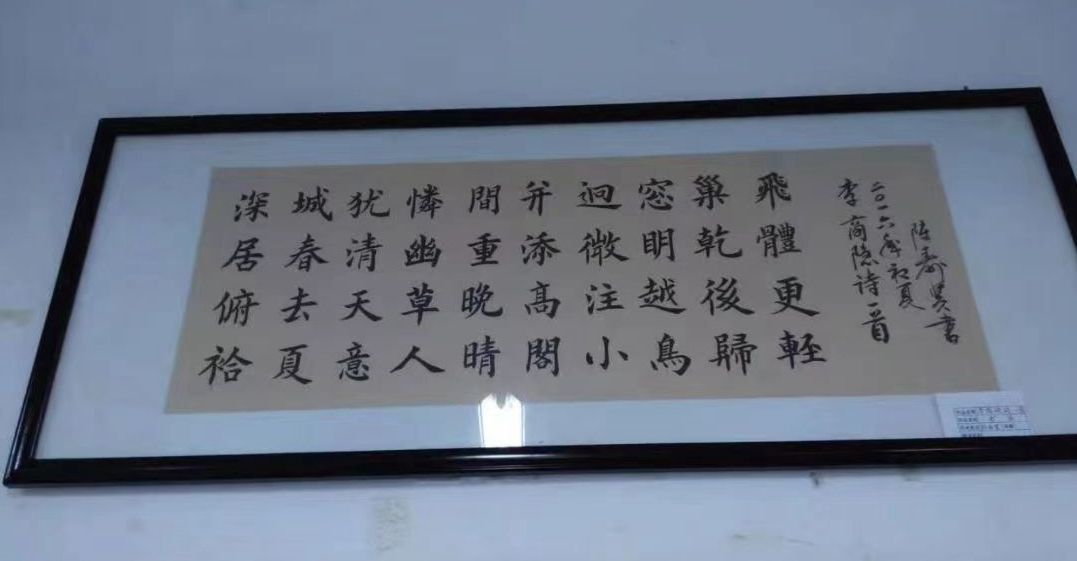 深居俯袷
城春去夏
犹清天意
憐幽草人
間重晚晴
并添髙閣
迥微注小
窓明越鳥
巢乾後歸
飛體更輕
李商隐诗一首
二〇一六年初夏
陈寿书